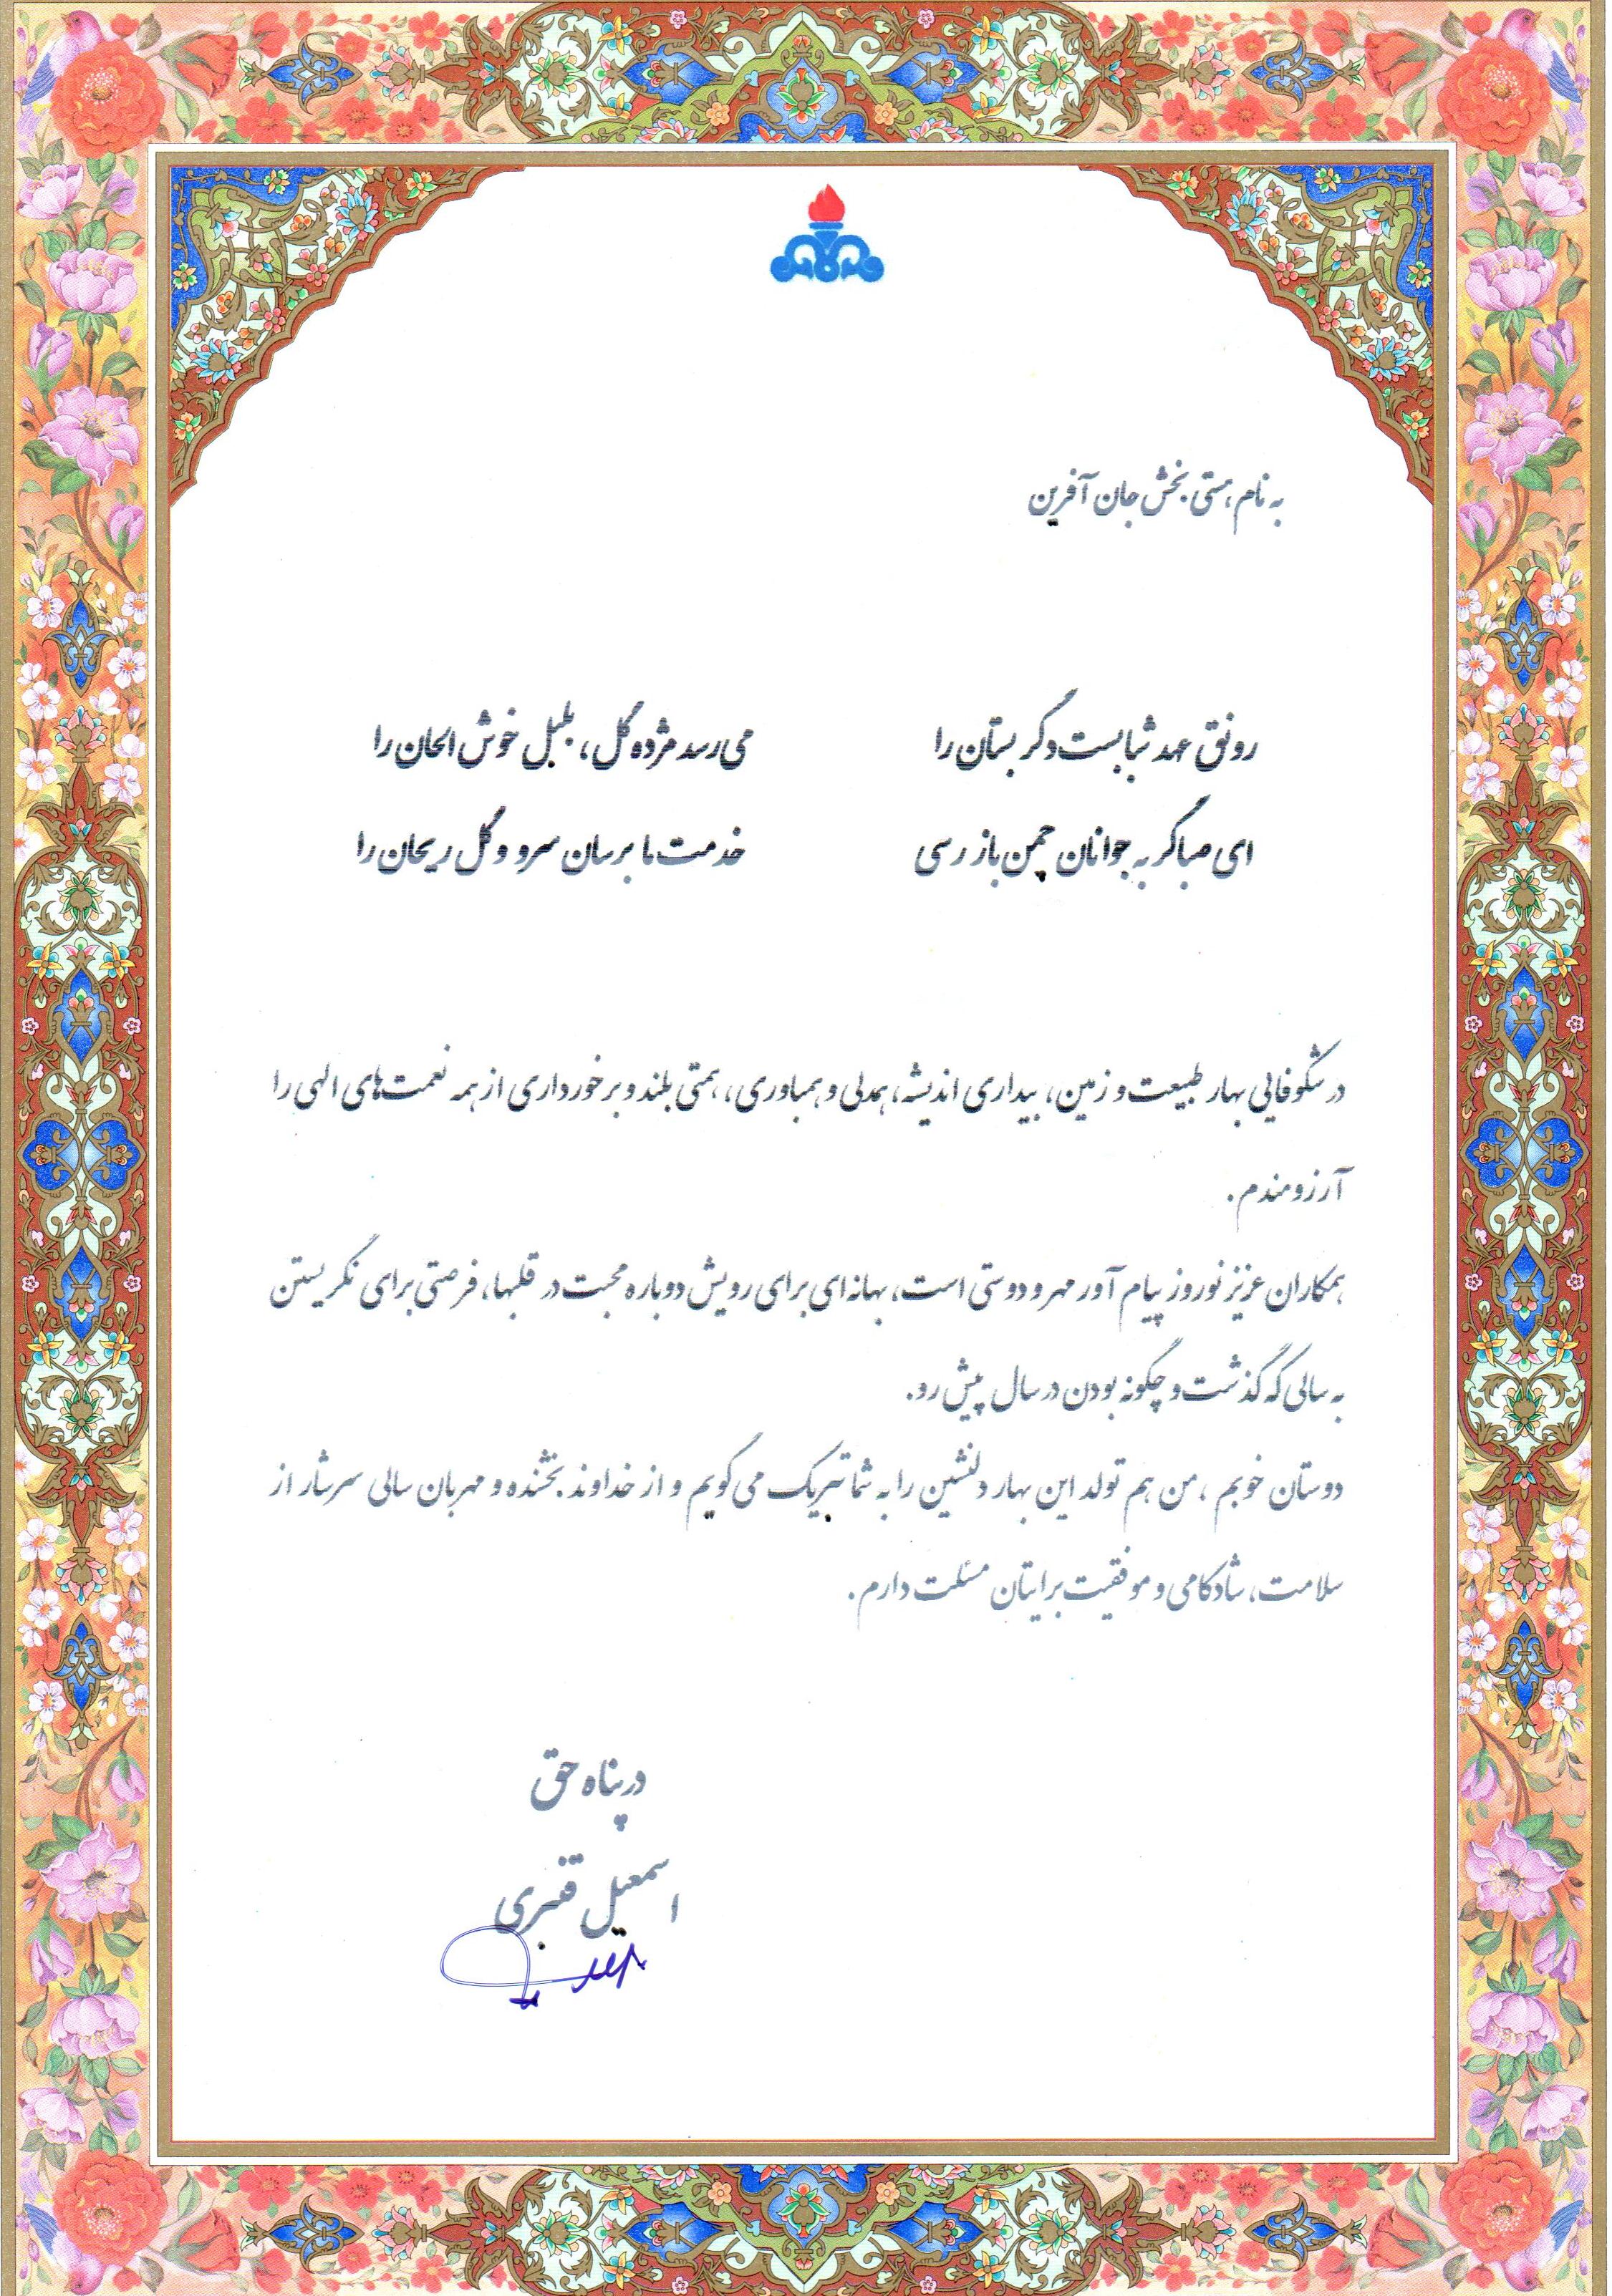 به نام هستی بخش جان آفرین
رونق عهد شبابست دگر بستان را می رسد مژده گل، بلبل خوش الحان را
ای صبا گر به جوانان چمن باز رسی خدمت ما برسان سرو و گل ریحان را
در شکوفایی بهار طبیعت و زمین، بیداری اندیشه، همدلی و همیاوری، همتی بلند و برخورداری از همه نعمت های الهی را
آرزومندم.
همکاران عزیز نوروز پیام آور مهر و دوستی است، بهانه ای برای رویش دوباره محبت در قلبها، فرصتی برای نگریستن
به سالی که گذشت و چگونه بودن در سال پیش رو.
دوستان خوبم، من هم تولد این بهار دلنشین را به شما تبریک می گویم و از خداوند بخشنده و مهربان سالی سرشار از
سلامت، شادکامی و موفقیت برایتان مسئلت دارم.
در پناه حق
اسمعیل قنبری